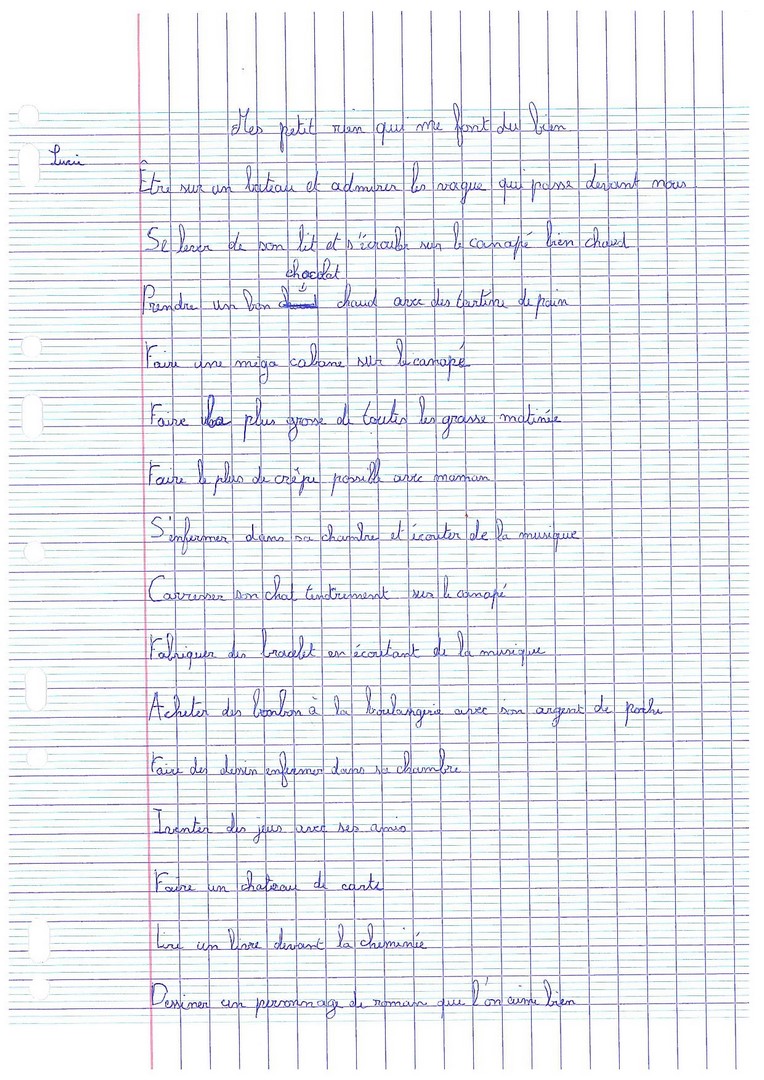 Mes petit rien qui me font du bien
Lucie
Être sur un bateau et admirer les vague qui passe devant nous
Se lever de son lit et s'écrouler sur le canapé bien chaud
chocolat
Prendre un bon chaud avec des tartine de pain
Faire une méga cabane sur le canapé
Faire la plus grosse de toutes les grasse matinée
Faire le plus de crêpe possible avec maman
S'enfermer dans sa chambre et écouter de la musique
Carresser son chat tendrement sur le canapé
Fabriquer des bracelet en écoutant de la musique
Acheter des bonbon à la boulangerie avec son argent de poche
Faire des dessin enfermer dans sa chambre
Inventer des jeus avec ses amis
Faire un chateau de carte
Lire un livre devant la cheminée
Dessiner un personnage de roman que l'on aime bien